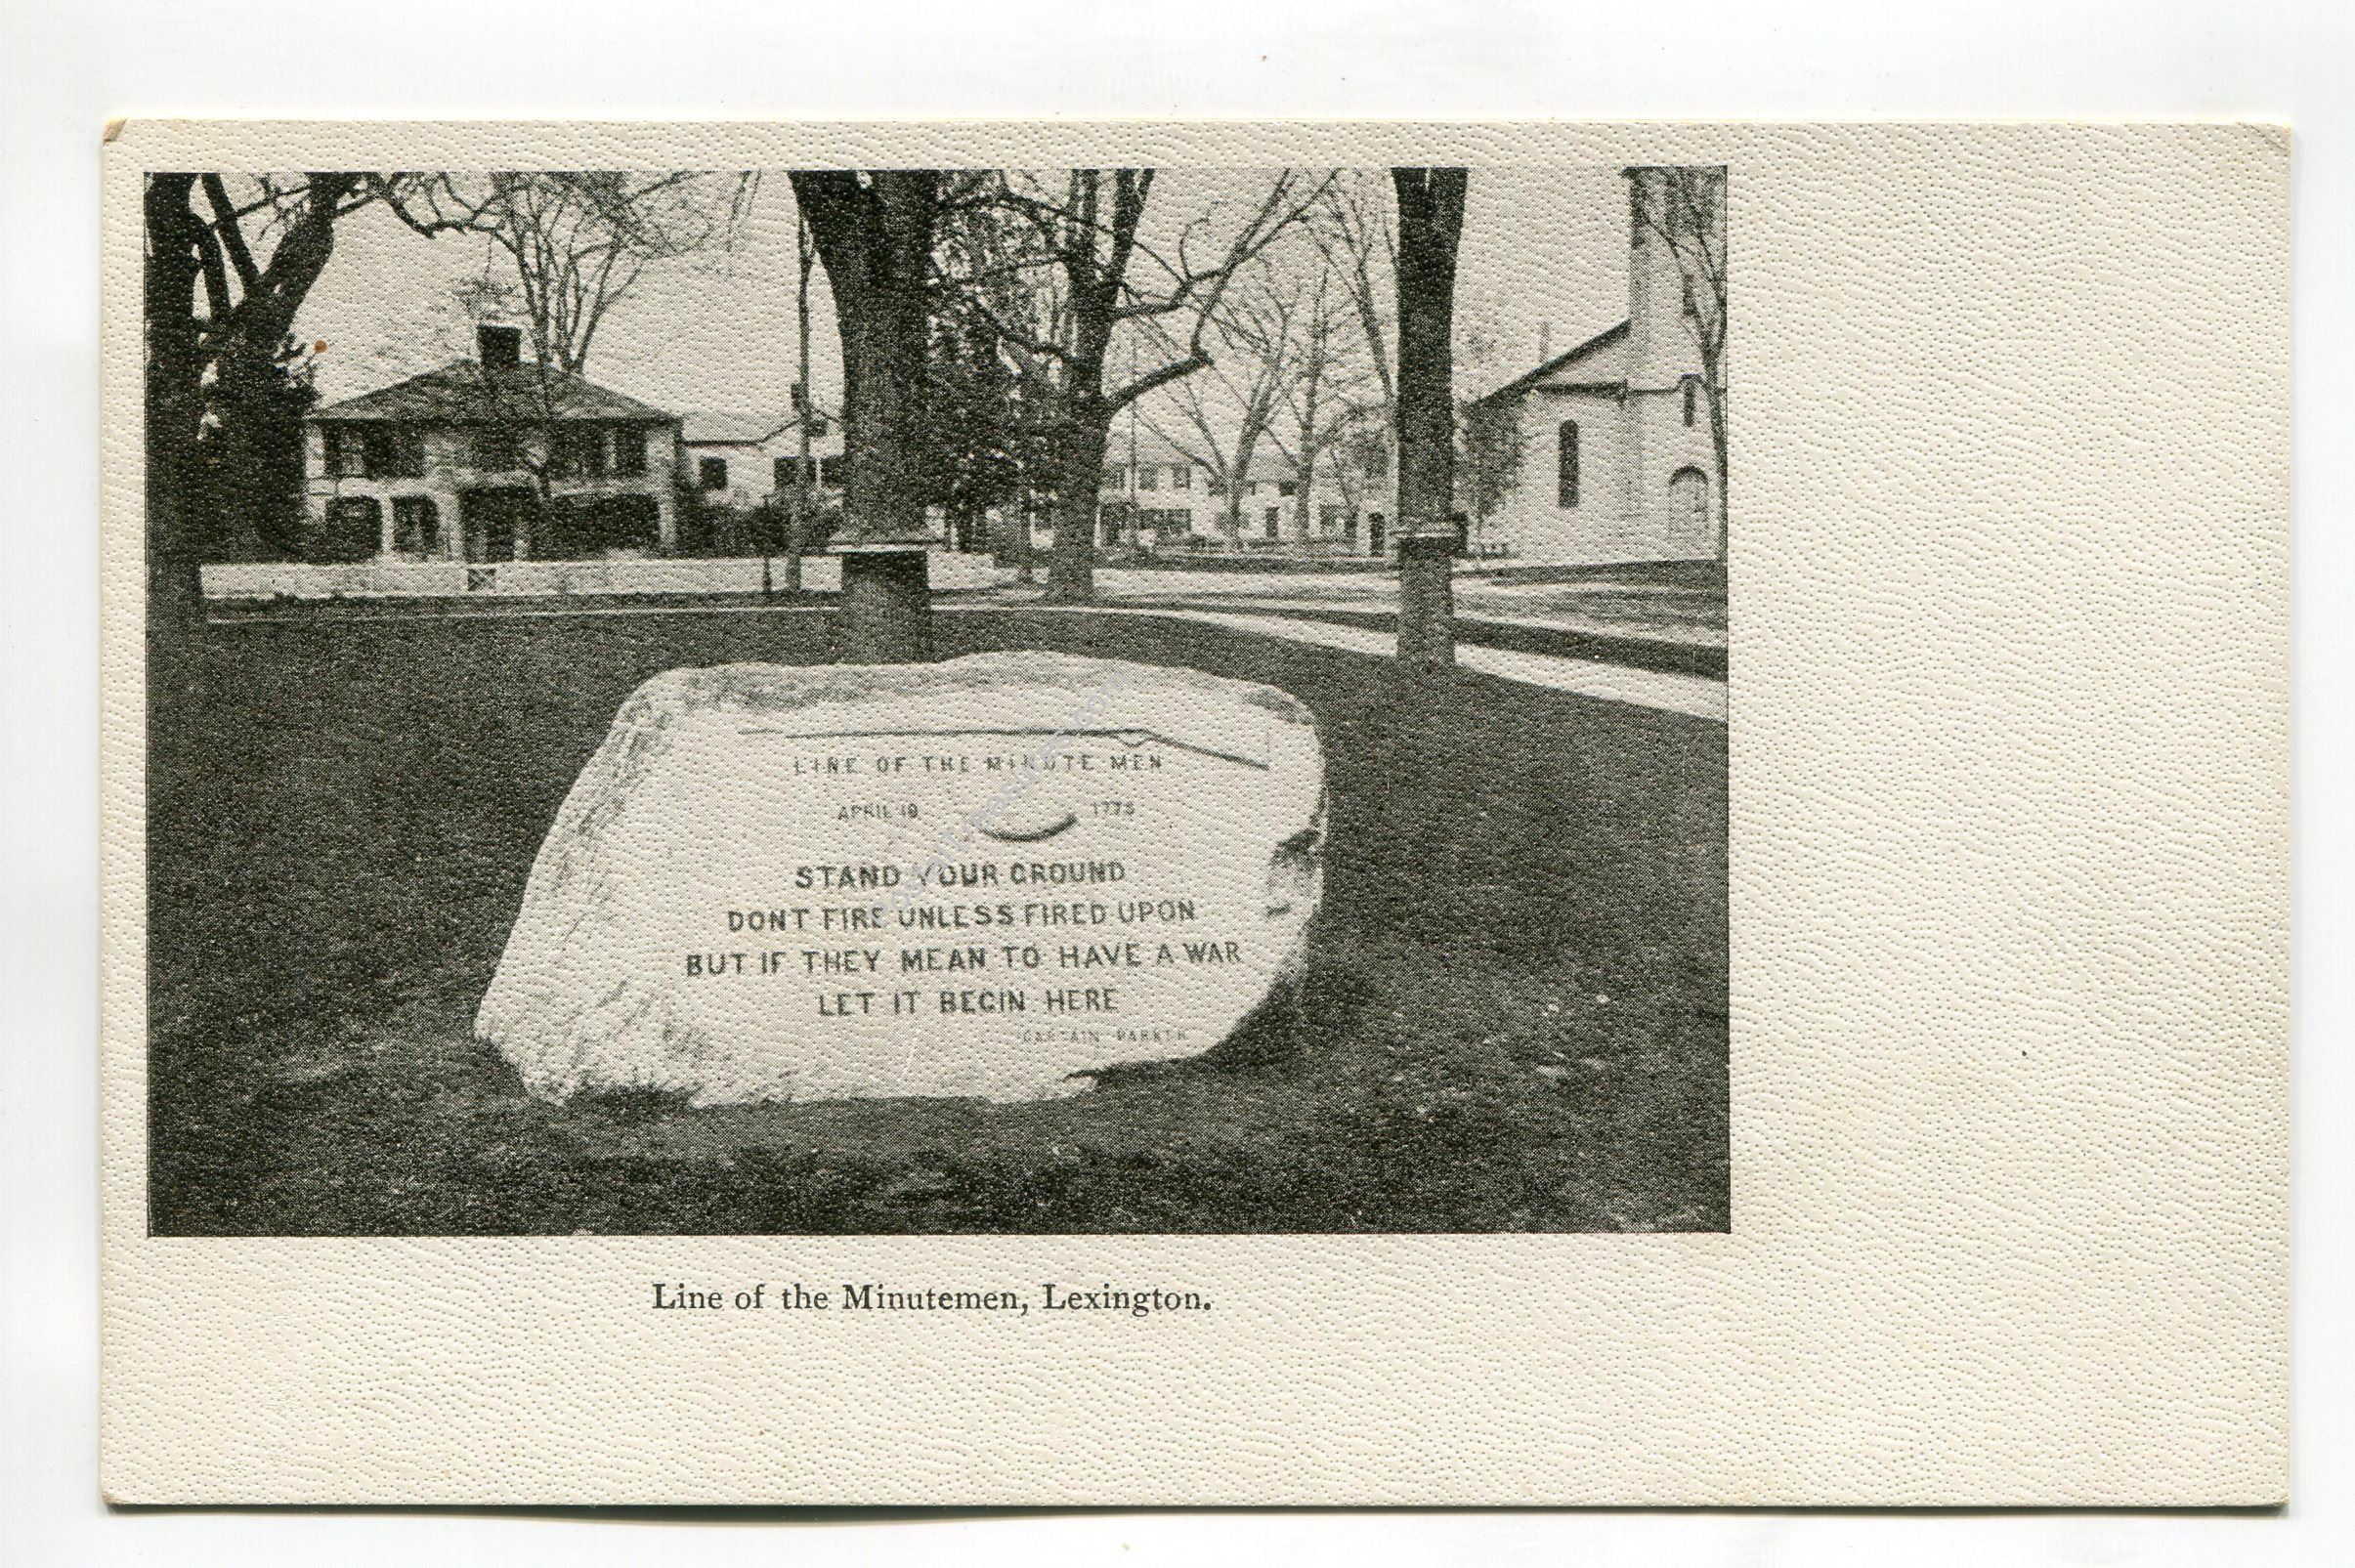 LINE OF THE MINUTE MEN
APRIL 19 1775
STAND YOUR GROUND
DONT FIRE UNLESS FIRED UPON
BUT IF THEY MEAN TO HAVE A WAR
LET IT BEGIN HERE
CAPTAIN PARKER
Line of the Minutemen, Lexington.